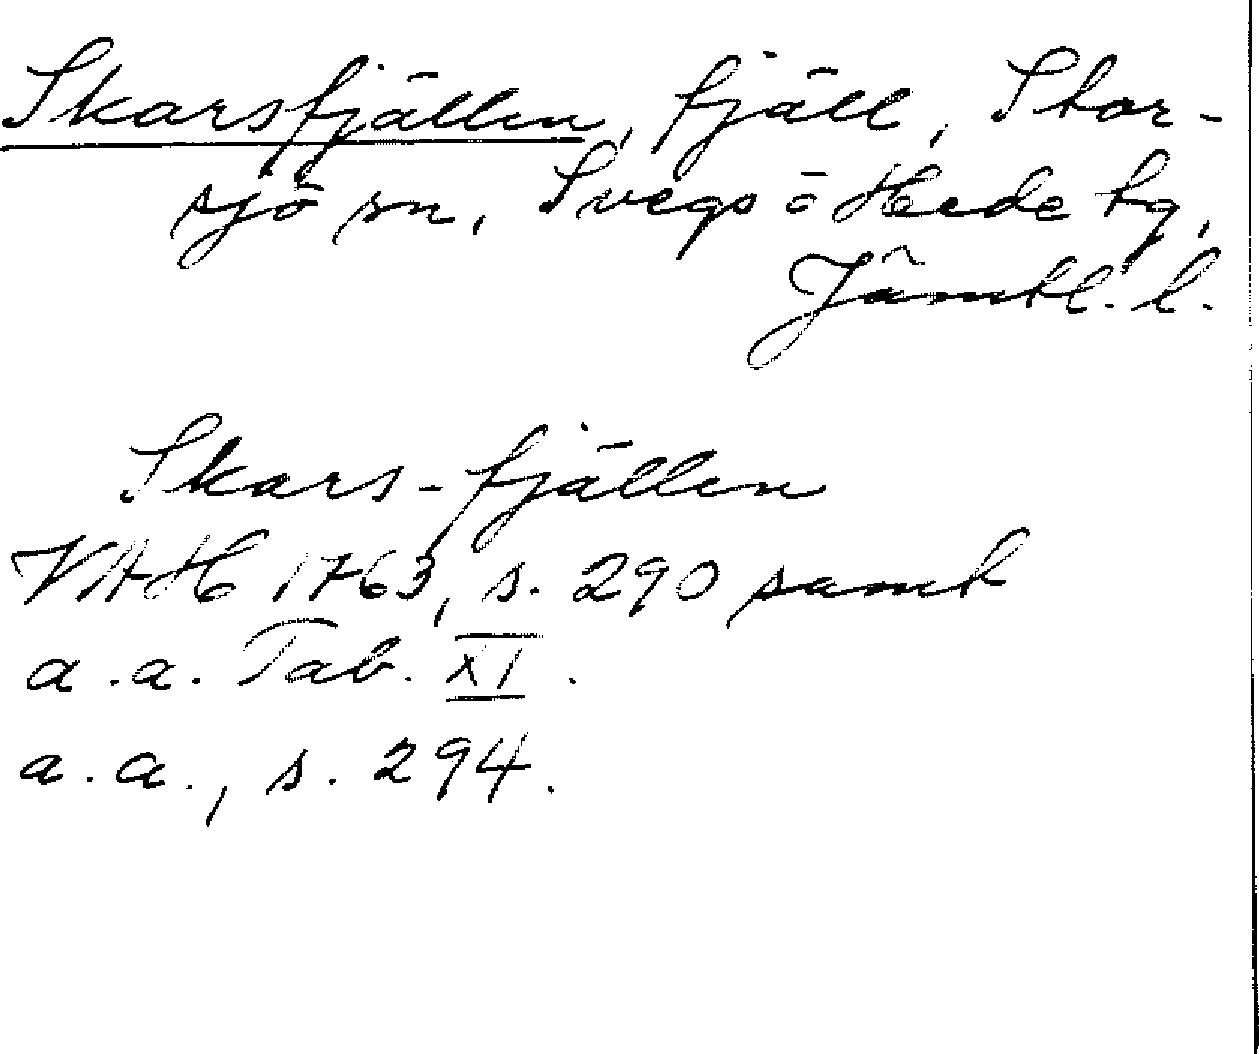 Skarsfjällen, fjäll, Stor-
sjö sn, Svegs o Hede tg,
Jämtl. l.
Skars-fjällen
VAH 1763, s. 290 samt
a.a. Tab. XI.
a.a., s. 294.